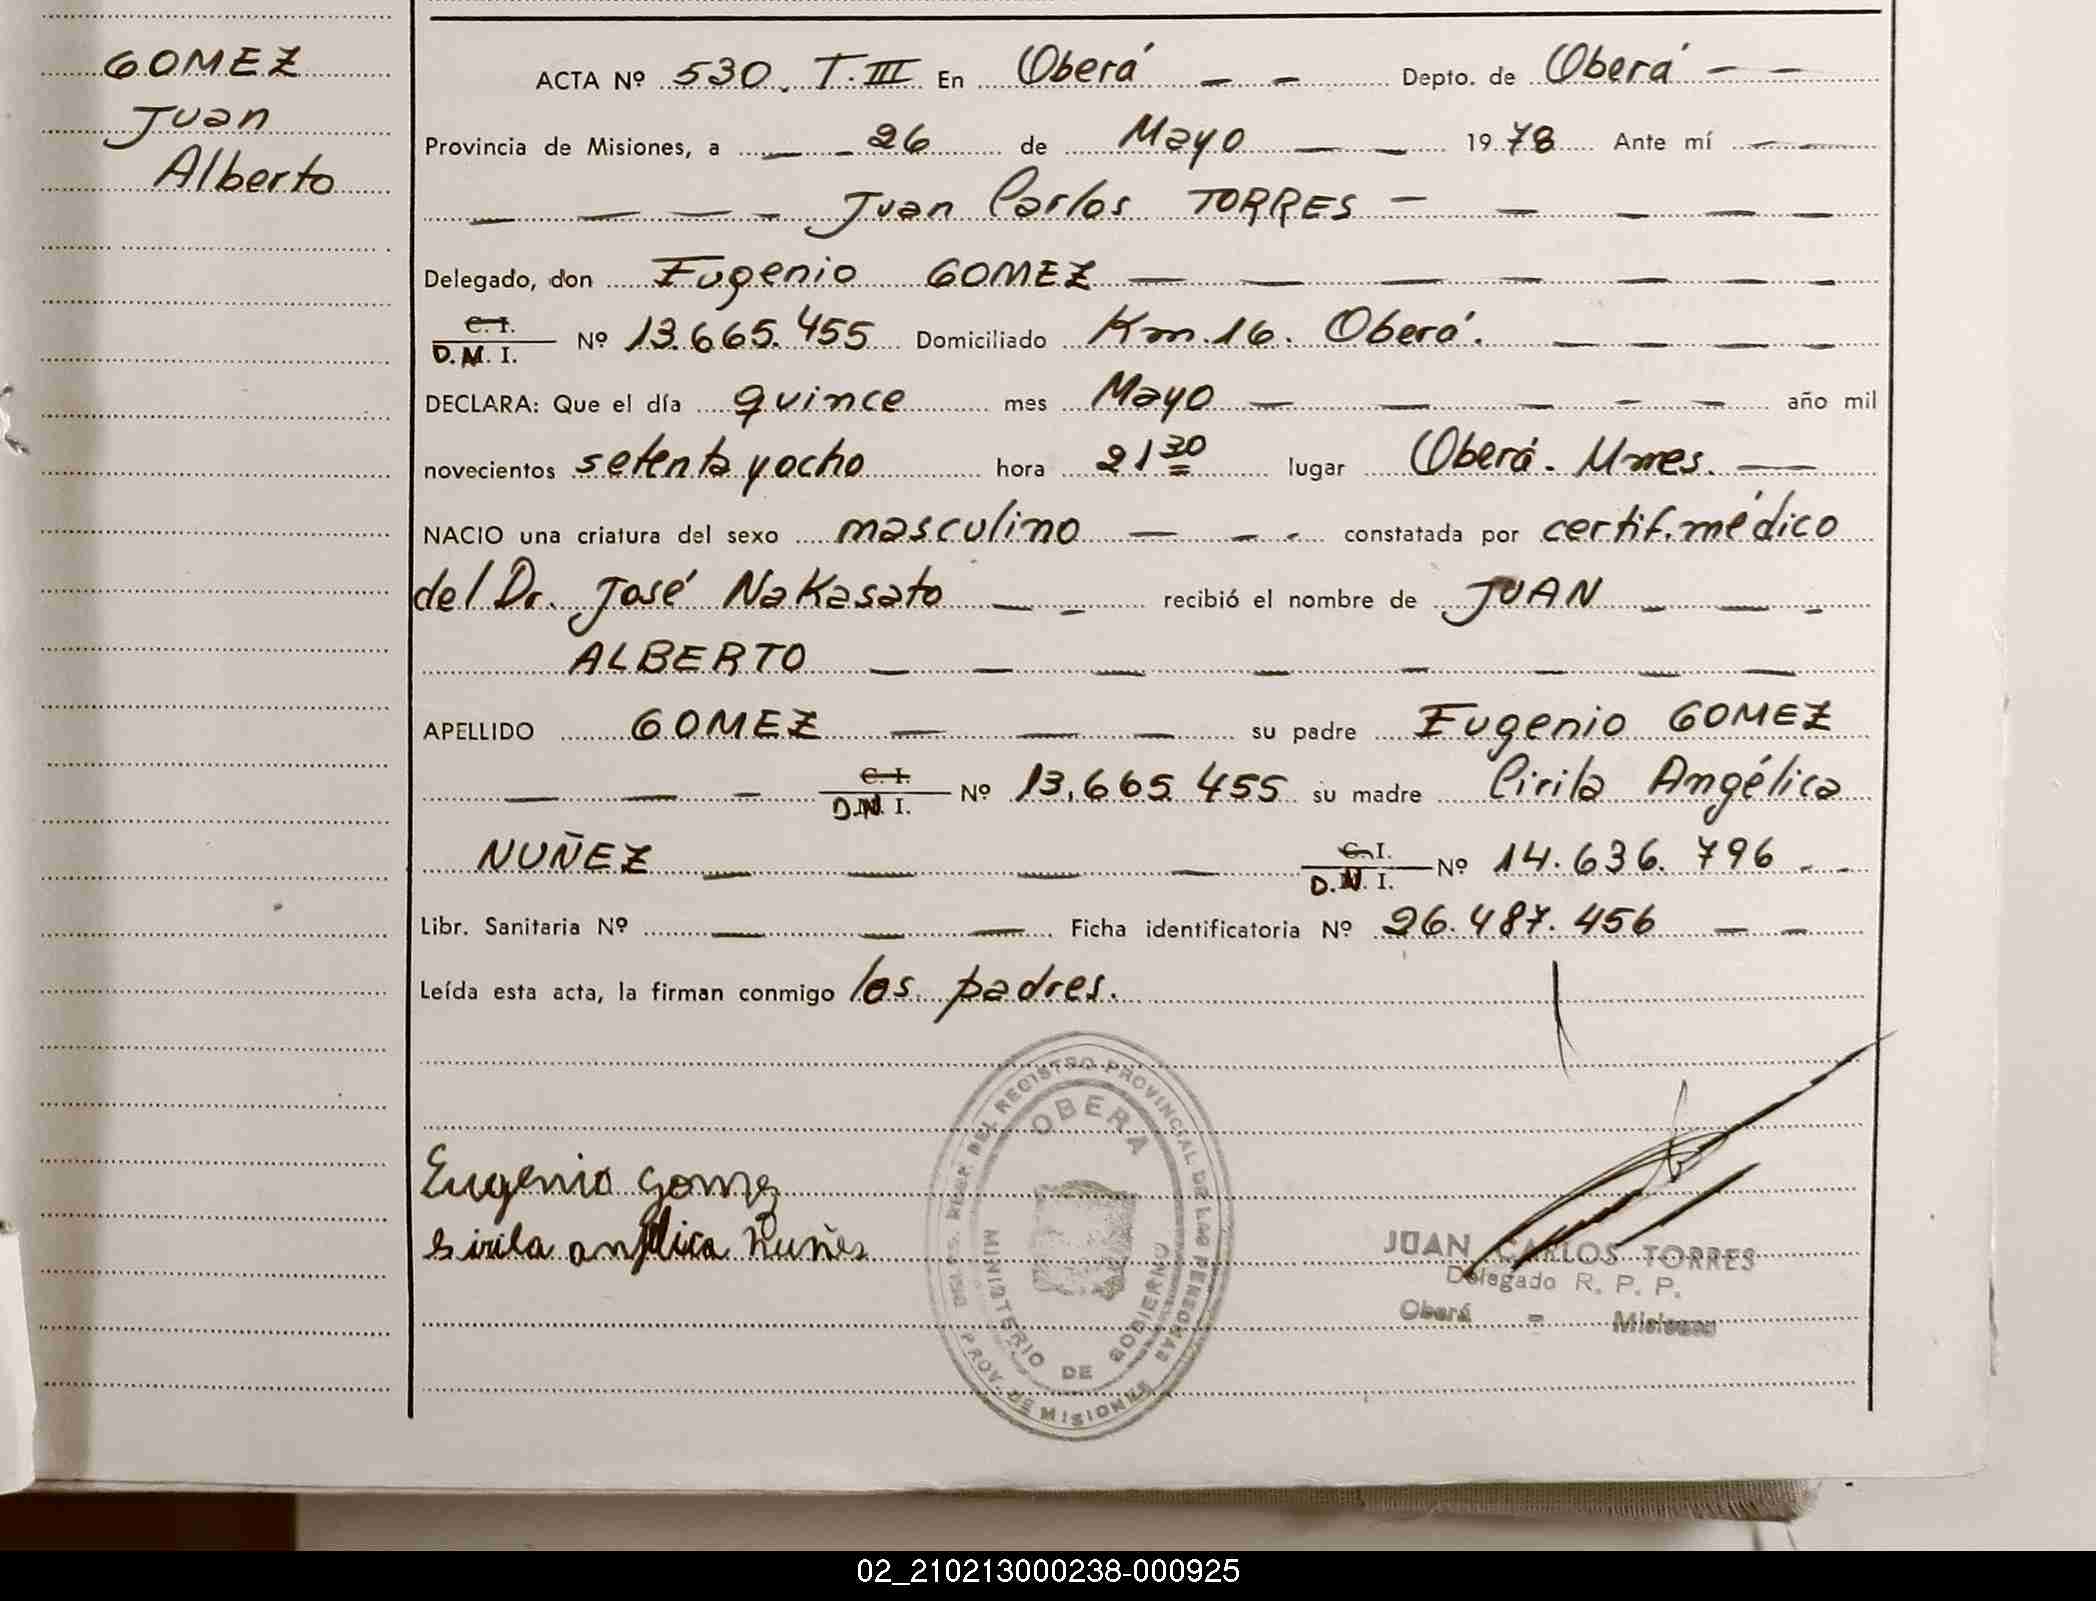 GOMEZ
Juan
Alberto
ACTA Nº 530. T. III En Oberá Depto. de Oberá
Provincia de Misiones, a 26 de Mayo 1978 Ante mí
Juan Carlos TORRES
Delegado, don Eugenio GOMEZ
C. I.
D. N. I. Nº 13.665.455 Domiciliado Km. 16. Oberá.
DECLARA: Que el día quince mes Mayo año mil
novecientos setenta y ocho hora 21 30 lugar Oberá. Mnes.
NACIO una criatura del sexo masculino constatada por certif. médico
del Dr. José Nakasato recibió el nombre de JUAN
ALBERTO
APELLIDO GOMEZ su padre Eugenio GOMEZ
C. I.
D. N. I. Nº 13.665.455 su madre Cirila Angélica
NUÑEZ C. I.
D. N. I. Nº 14.636.796
Libr. Sanitaria Nº Ficha identificatoria Nº 26.487.456
Leída esta acta, la firman conmigo los padres.
OBERA
DEL REGISTRO PROVINCIAL DE LAS PERSONAS
MINISTERIO DE GOBIERNO
PROV. DE MISIONES
Eugenio Gomez
Sirila anjelica Nuñes
JUAN CARLOS TORRES
Delegado R. P. P.
Oberá - Misiones
02_210213000238-000925